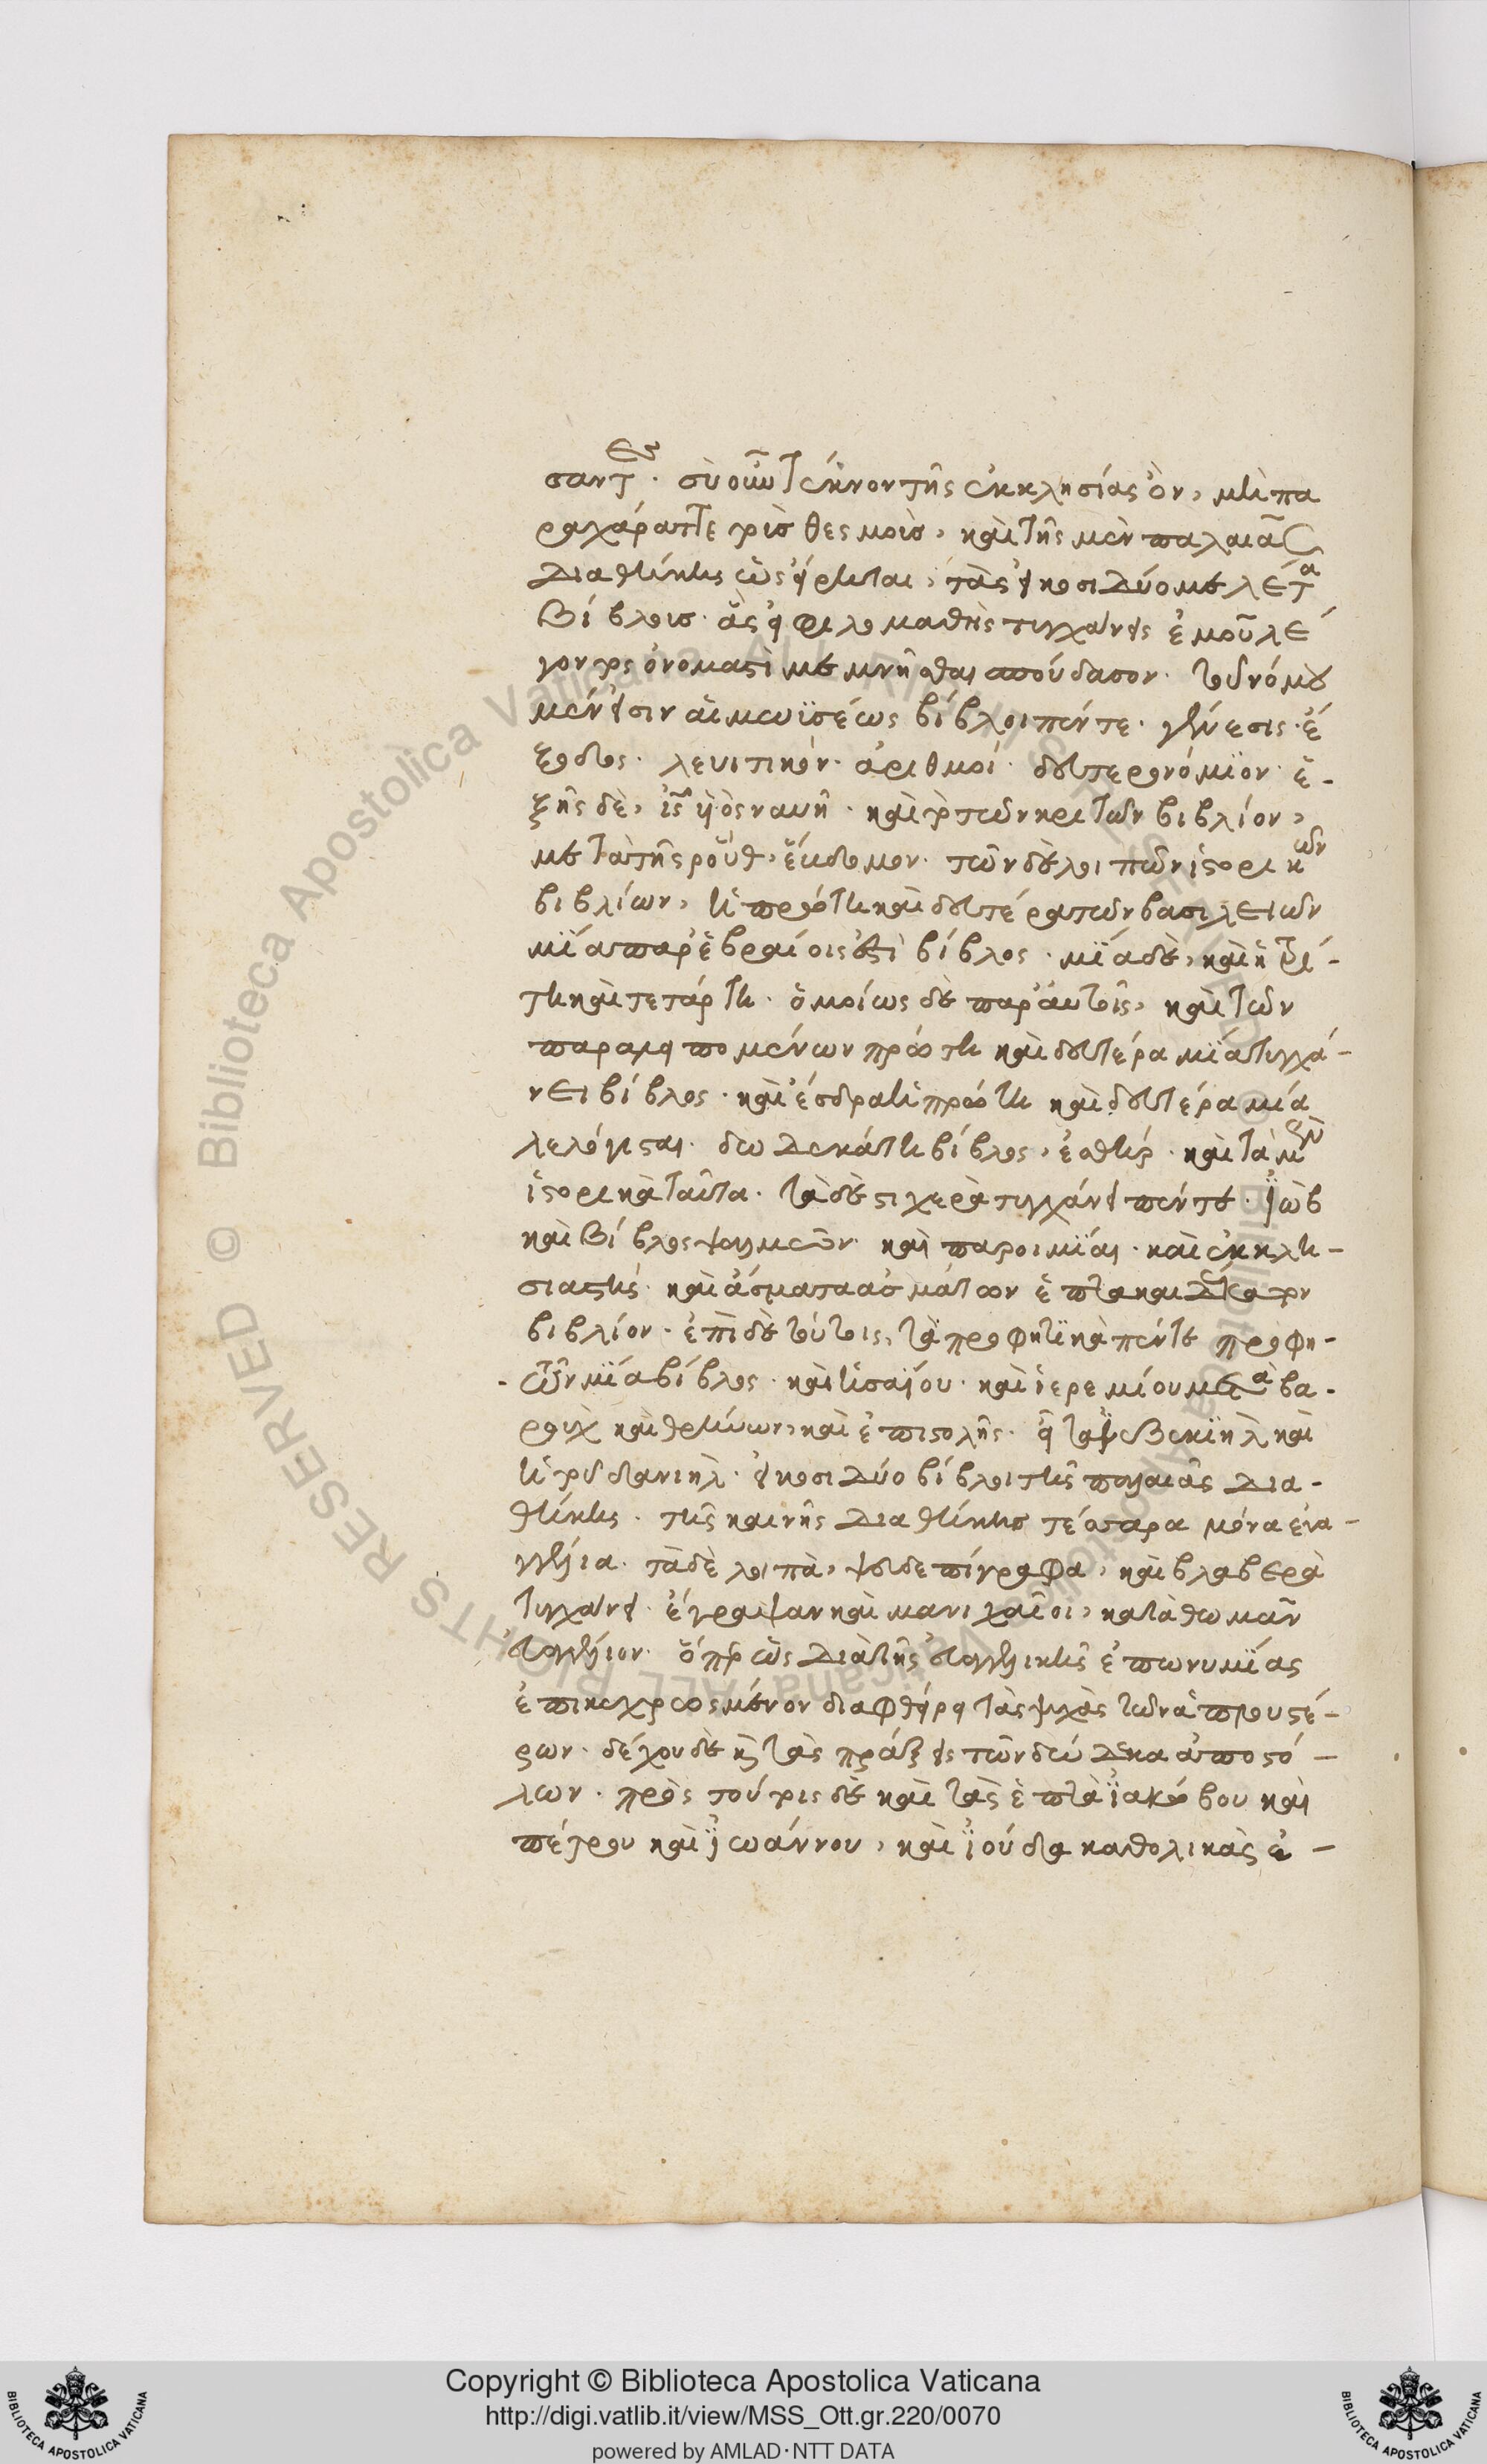 σαντες. σὺ οὖν τέκνον τῆς ἐκκλησίας ὂν, μὴ πα
ραχάραττε τοῖς θεσμοῖς, καὶ τῆς μὲν παλαιᾶς
διαθήκης ὡς εἴρηται, τὰς εἴκοσι δύο μελέτα
βίβλοις. ἃς εἰ φιλομαθὴς τυγχάνεις ἐμοῦ λέ
γοντος ὀνομαστὶ μεμνῆσθαι σπούδασον. τοῦ νόμου
μέν εἰσιν αἱ μωϋσέως βίβλοι πέντε. γένεσις. ἔ
ξοδος. λευιτικόν. ἀριθμοί. δευτερονόμϊον. ἐ-
ξῆς δὲ, ἰς υἱὸς ναυῆ. καὶ τὸ τῶν κριτῶν βιβλίον,
μετὰ τῆς ροὺθ, ἕβδομον. τῶν δὲ λοιπῶν ἱστορικῶν
βιβλίων, ἡ πρώτη καὶ δευτέρα τῶν βασιλειῶν
μϊά παρ' ἑβραίοις ἐστὶ βίβλος. μϊά δὲ, καὶ ἡ τρί-
τη καὶ τετάρτη. ὁμοίως δὲ παρ' αὐτοῖς, καὶ τῶν
παραλειπομένων πρώτη καὶ δευτέρα μϊά τυγχά-
νει βίβλος. καὶ ἔσδρα ἡ πρώτη καὶ δευτέρα μία
λελόγισται. δωδεκάτη βίβλος, ἐσθήρ. καὶ τὰ μὲν
ἱστορικὰ ταῦτα. τὰ δὲ στιχηρὰ τυγχάνει πέντε. ϊὼβ
καὶ βίβλος ψαλμῶν. καὶ παροιμϊαι. καὶ ἐκκλη-
σιαστής. καὶ ἄσματα ἀσμάτων ἑπτακαιδέκατον
βιβλίον. ἐπὶ δὲ τούτοις, τὰ προφητϊκὰ πέντε προφη-
τῶν μϊά βίβλος. καὶ ἡσαΐου. καὶ ἱερεμίου μετὰ βα-
ροὺχ καὶ θρήνων, καὶ ἐπιστολῆς. εἶτα ϊεζεκϊὴλ καὶ
ἡ τοῦ δανιηλ. εἴκοσι δύο βίβλοι τῆς παλαιᾶς δια-
θήκης. τῆς καινῆς διαθήκης τέσσαρα μόνα εὐα-
γγέλια. τὰ δὲ λοιπὰ, ψευδεπίγραφα, καὶ βλαβερὰ
τυγχάνει. ἔγραψαν καὶ μανιχαῖοι, κατὰ θωμᾶν
εὐαγγέλιον. ὅπερ ὡς διὰ τῆς εὐαγγελικῆς ἐπωνυμϊας
ἐπικεχρωσμένον διαφθείρει τὰς ψυχὰς τῶν ἁπλουστέ-
ρων. δέχου δὲ καὶ τὰς πράξεις τῶν δώδεκα ἀποστό-
λων. πρὸς τούτοις δὲ καὶ τὰς ἑπτὰ ϊακώβου καὶ
πέτρου καὶ ϊωάννου, καὶ ϊούδα καθολικὰς ἐ-
Copyright © Biblioteca Apostolica Vaticana
http://digi.vatlib.it/view/MSS_Ott.gr.220/0070
powered by AMLAD·NTT DATA